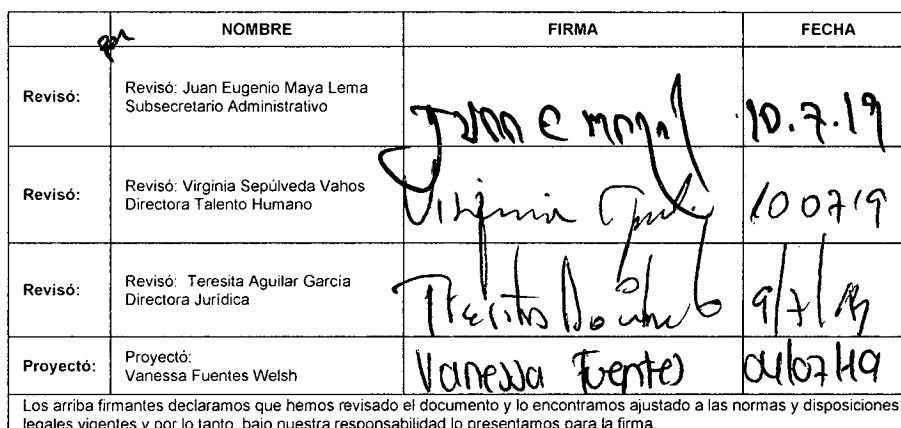 NOMBRE FIRMA FECHA
Revisó: Revisó: Juan Eugenio Maya Lema
Subsecretario Administrativo
Juan E Maya 10.7.19
Revisó: Revisó: Virginia Sepúlveda Vahos
Directora Talento Humano
Virginia 10 07 19
Revisó: Revisó: Teresita Aguilar García
Directora Jurídica
Teresita 9/7/19
Proyectó: Proyectó:
Vanessa Fuentes Welsh
Vanessa Fuentes 04/07/19
Los arriba firmantes declaramos que hemos revisado el documento y lo encontramos ajustado a las normas y disposiciones
legales vigentes y por lo tanto, bajo nuestra responsabilidad lo presentamos para la firma.